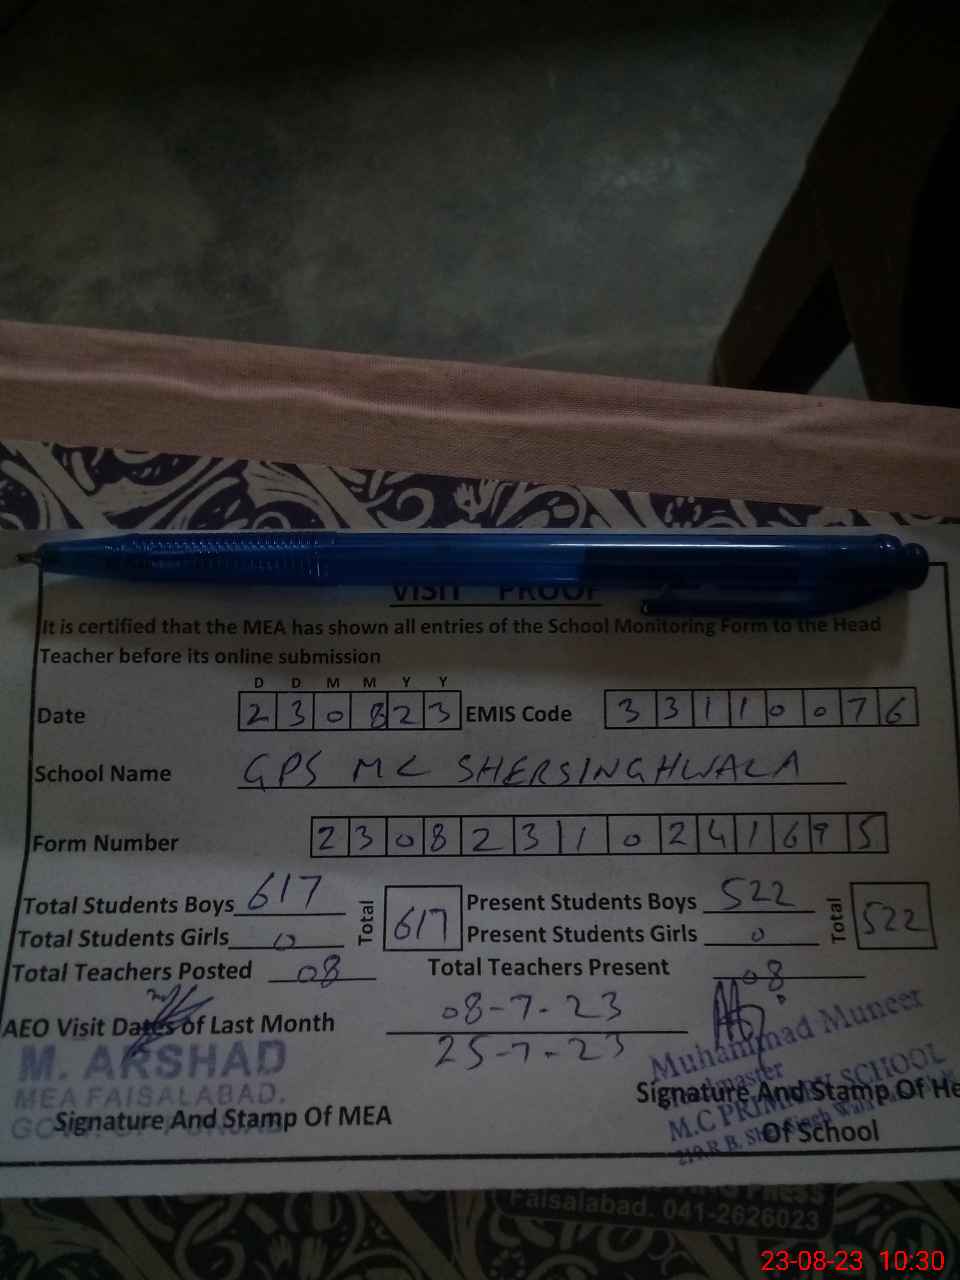 VISIT PROOF
It is certified that the MEA has shown all entries of the School Monitoring Form to the Head
Teacher before its online submission
D D M M Y Y
Date 230823 EMIS Code 33110076
School Name GPS MC SHERSINGHWALA
Form Number 23082310241695
Total Students Boys 617 Total 617 Present Students Boys 522 Total 522
Total Students Girls 0 Present Students Girls 0
Total Teachers Posted 08 Total Teachers Present 08
AEO Visit Dates of Last Month 08-7-23
25-7-23
M. ARSHAD
MEA FAISALABAD.
GOVT. OF PUNJAB
Signature And Stamp Of MEA
Muhammad Muneer
Headmaster
M.C PRIMARY SCHOOL
Signature And Stamp Of He
Of School
PRESS
Faisalabad. 041-2626023
23-08-23 10:30